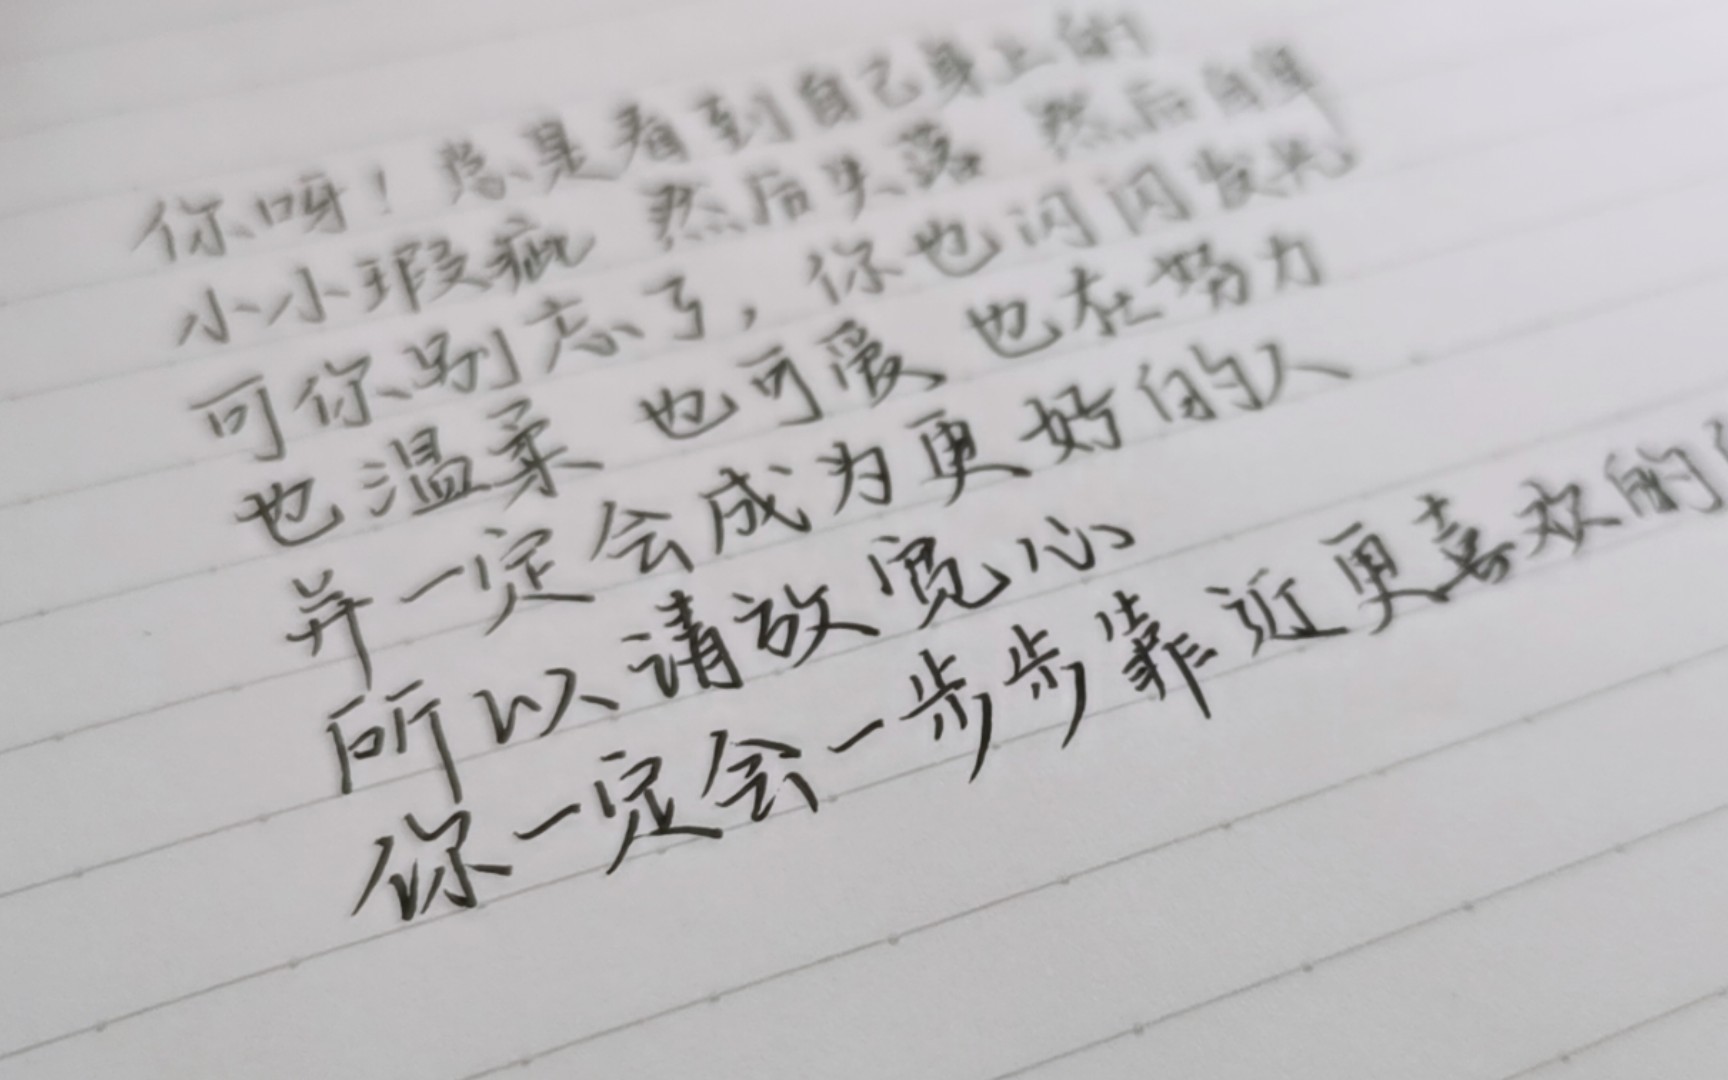 你呀！总是看到自己身上的
小小瑕疵 然后失落 然后自卑
可你别忘了，你也闪闪发光
也温柔 也可爱 也在努力
并一定会成为更好的人
所以请放宽心
你一定会一步步靠近更喜欢的